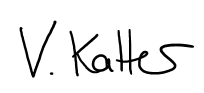 V. Kattes